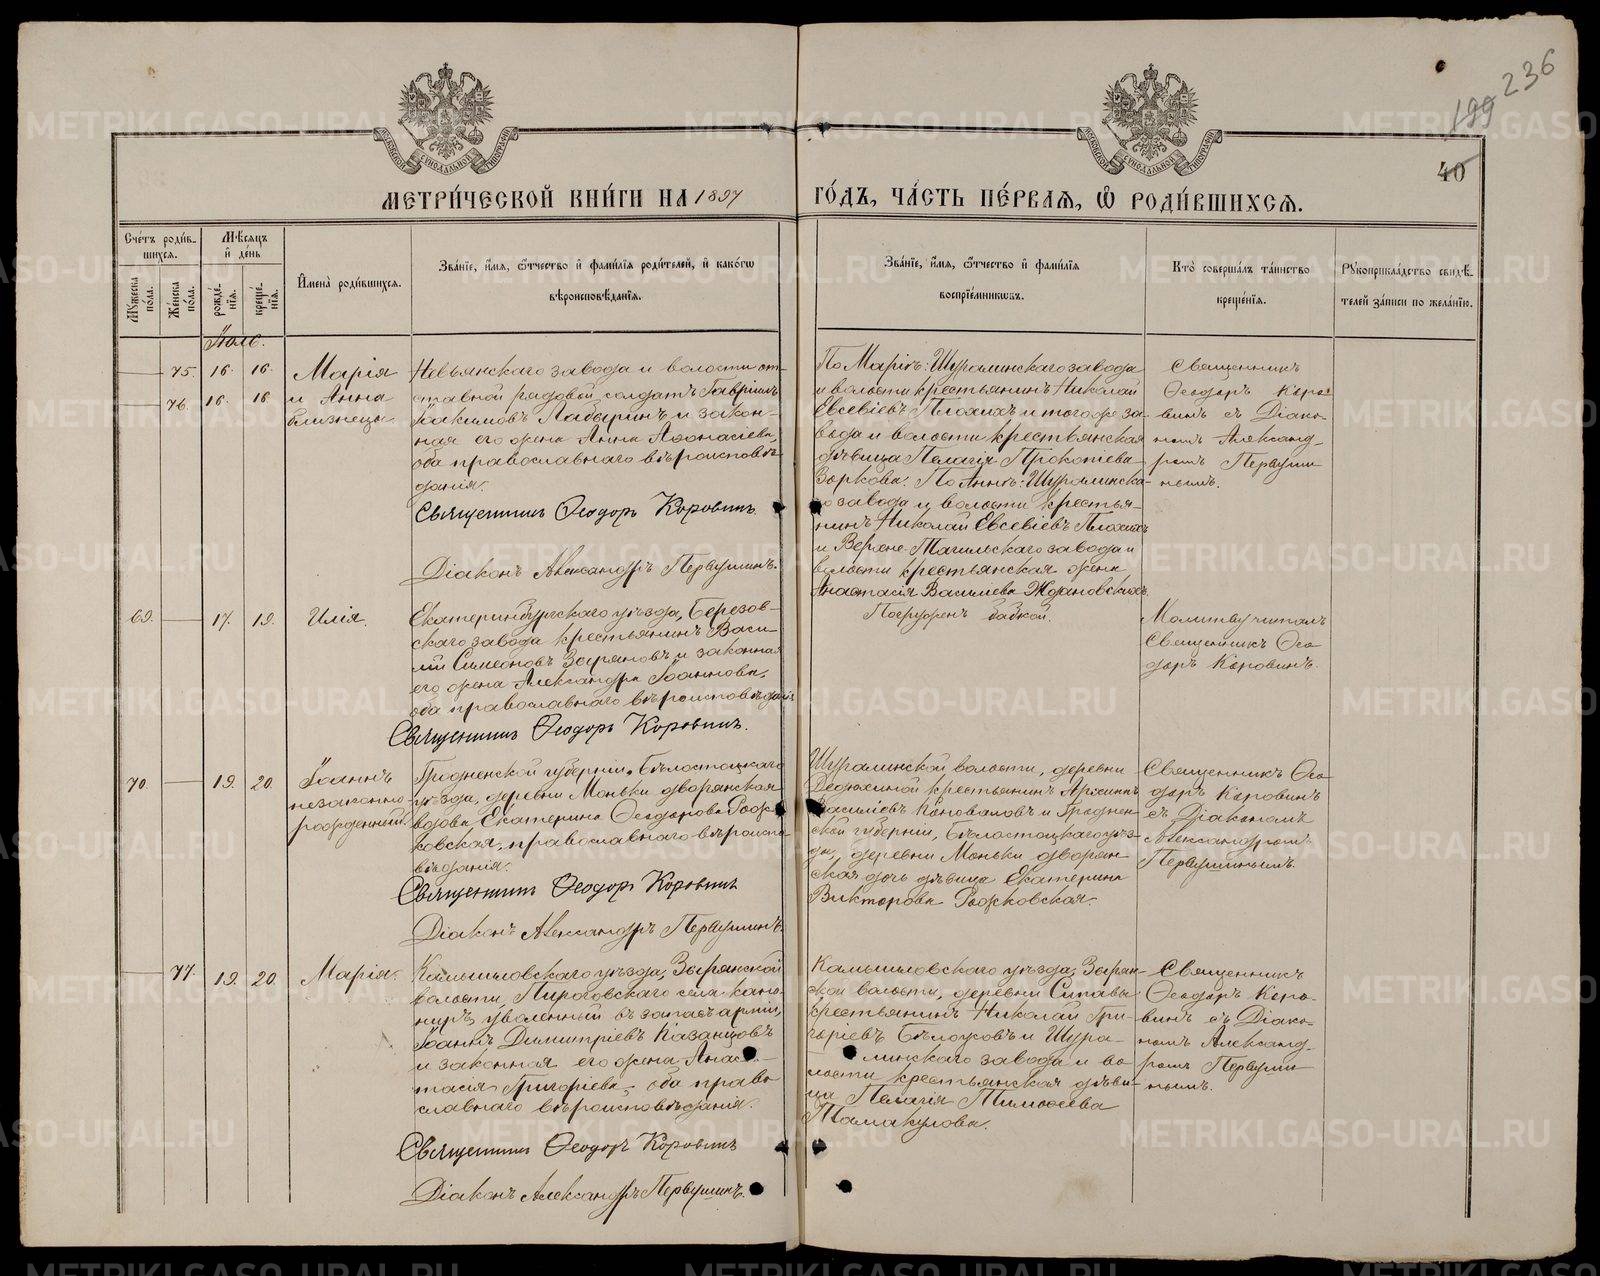 236
199
40
МЕТРИ́ЧЕСКОЙ КНИ́ГИ НА 1897
ГО́ДЪ, ЧА́СТЬ ПЕ́РВАЯ, Ѡ РОДИ́ВШИХСЯ.
Сче́тъ роди́в-
шихся.
Мѣ́сяцъ
и҆ де́нь
Мꙋ́жеска по́ла.
Же́нска по́ла.
рожде́-
нїѧ.
креще́-
нїѧ.
И҆мена̀ роди́вшихсѧ.
Зва́нїе, и҆́мѧ, ѻ҆́тчество и҆ фами́лїѧ роди́телей, и҆ како́гѡ
вѣроисповѣ́данїѧ.
Зва́нїе, и҆́мѧ, ѻ҆́тчество и҆ фами́лїѧ
воспрїе́мникѡвъ.
Кто̀ соверша́лъ та́инство
креще́нїѧ.
Рꙋкоприкла́дство свидѣ́-
телей за́писи по жела́нїю.
Іюль.
75. 16. 16. Марія
76. 16. 16 и Анна
близнецы
Невьянскаго завода и волости от-
ставной рядовой солдатъ Гавріилъ
Іакимовъ Лабыринъ и закон-
ная его жена Анна Аѳонасіева,
оба православнаго вѣроисповѣ-
данія.
Священникъ Ѳеодоръ Коровинъ.
Діаконъ Александръ Первушинъ.
По Маріи: Шуралинскаго завода
и волости крестьянинъ Николай
Евсевіевъ Плохихъ и тогоже за-
вода и волости крестьянская
дѣвица Пелагія Прокопіева
Зоркова. По Аннѣ: Шуралинска-
го завода и волости крестья-
нинъ Николай Евсевіевъ Плохихъ
и Верхне-Тагильскаго завода и
волости крестьянская жена
Анастасія Васильева Ждановскихъ.
Священникъ
Ѳеодоръ Коро-
винъ съ Діако-
номъ Александ-
ромъ Первуши-
нымъ.
69. 17. 19. Илія.
Екатеринбургскаго уѣзда, Березов-
скаго завода крестьянинъ Васи-
лій Симеоновъ Зыряновъ и законная
его жена Александра Іоаннова,
оба православнаго вѣроисповѣданія
Священникъ Ѳеодоръ Коровинъ.
Погруженъ бабкой.
Молитву читалъ
Священникъ Ѳео-
доръ Коровинъ.
70. 19. 20. Іоаннъ
незаконно-
рожденный
Гродненской губерніи, Бѣлостоцкаго
уѣзда, деревни Моньки дворянская
вдова Екатерина Ѳеодорова Рож-
ковская, православнаго вѣроиспо-
вѣданія.
Священникъ Ѳеодоръ Коровинъ
Діаконъ Александръ Первушинъ.
Шуралинской волости, деревни
Дедюхиной крестьянинъ Архиппъ
Василіевъ Коноваловъ и Гроднен-
ской губерніи, Бѣлостоцкаго уѣз-
да, деревни Моньки дворян-
ская дочь дѣвица Екатерина
Викторова Рожковская.
Священникъ Ѳео-
доръ Коровинъ
съ Діакономъ
Александромъ
Первушинымъ.
77. 19. 20. Марія.
Камышловскаго уѣзда, Зырянской
волости, Пироговскаго села кано-
ниръ, уволенный въ запасъ арміи,
Іоаннъ Димитріевъ Казанцовъ
и законная его жена Анас-
тасія Григоріева, оба право-
славнаго вѣроисповѣданія.
Священникъ Ѳеодоръ Коровинъ
Діаконъ Александръ Первушинъ.
Камышловскаго уѣзда, Зырян-
ской волости, деревни Сипавы
крестьянинъ Николай Гри-
горіевъ Бѣлоусовъ и Шура-
линскаго завода и во-
лости крестьянская дѣви-
ца Пелагія Тимоѳеева
Тамакулова.
Священникъ
Ѳеодоръ Коро-
винъ съ Діако-
номъ Александ-
ромъ Первуши-
нымъ.
METRIKI.GASO-URAL.RU